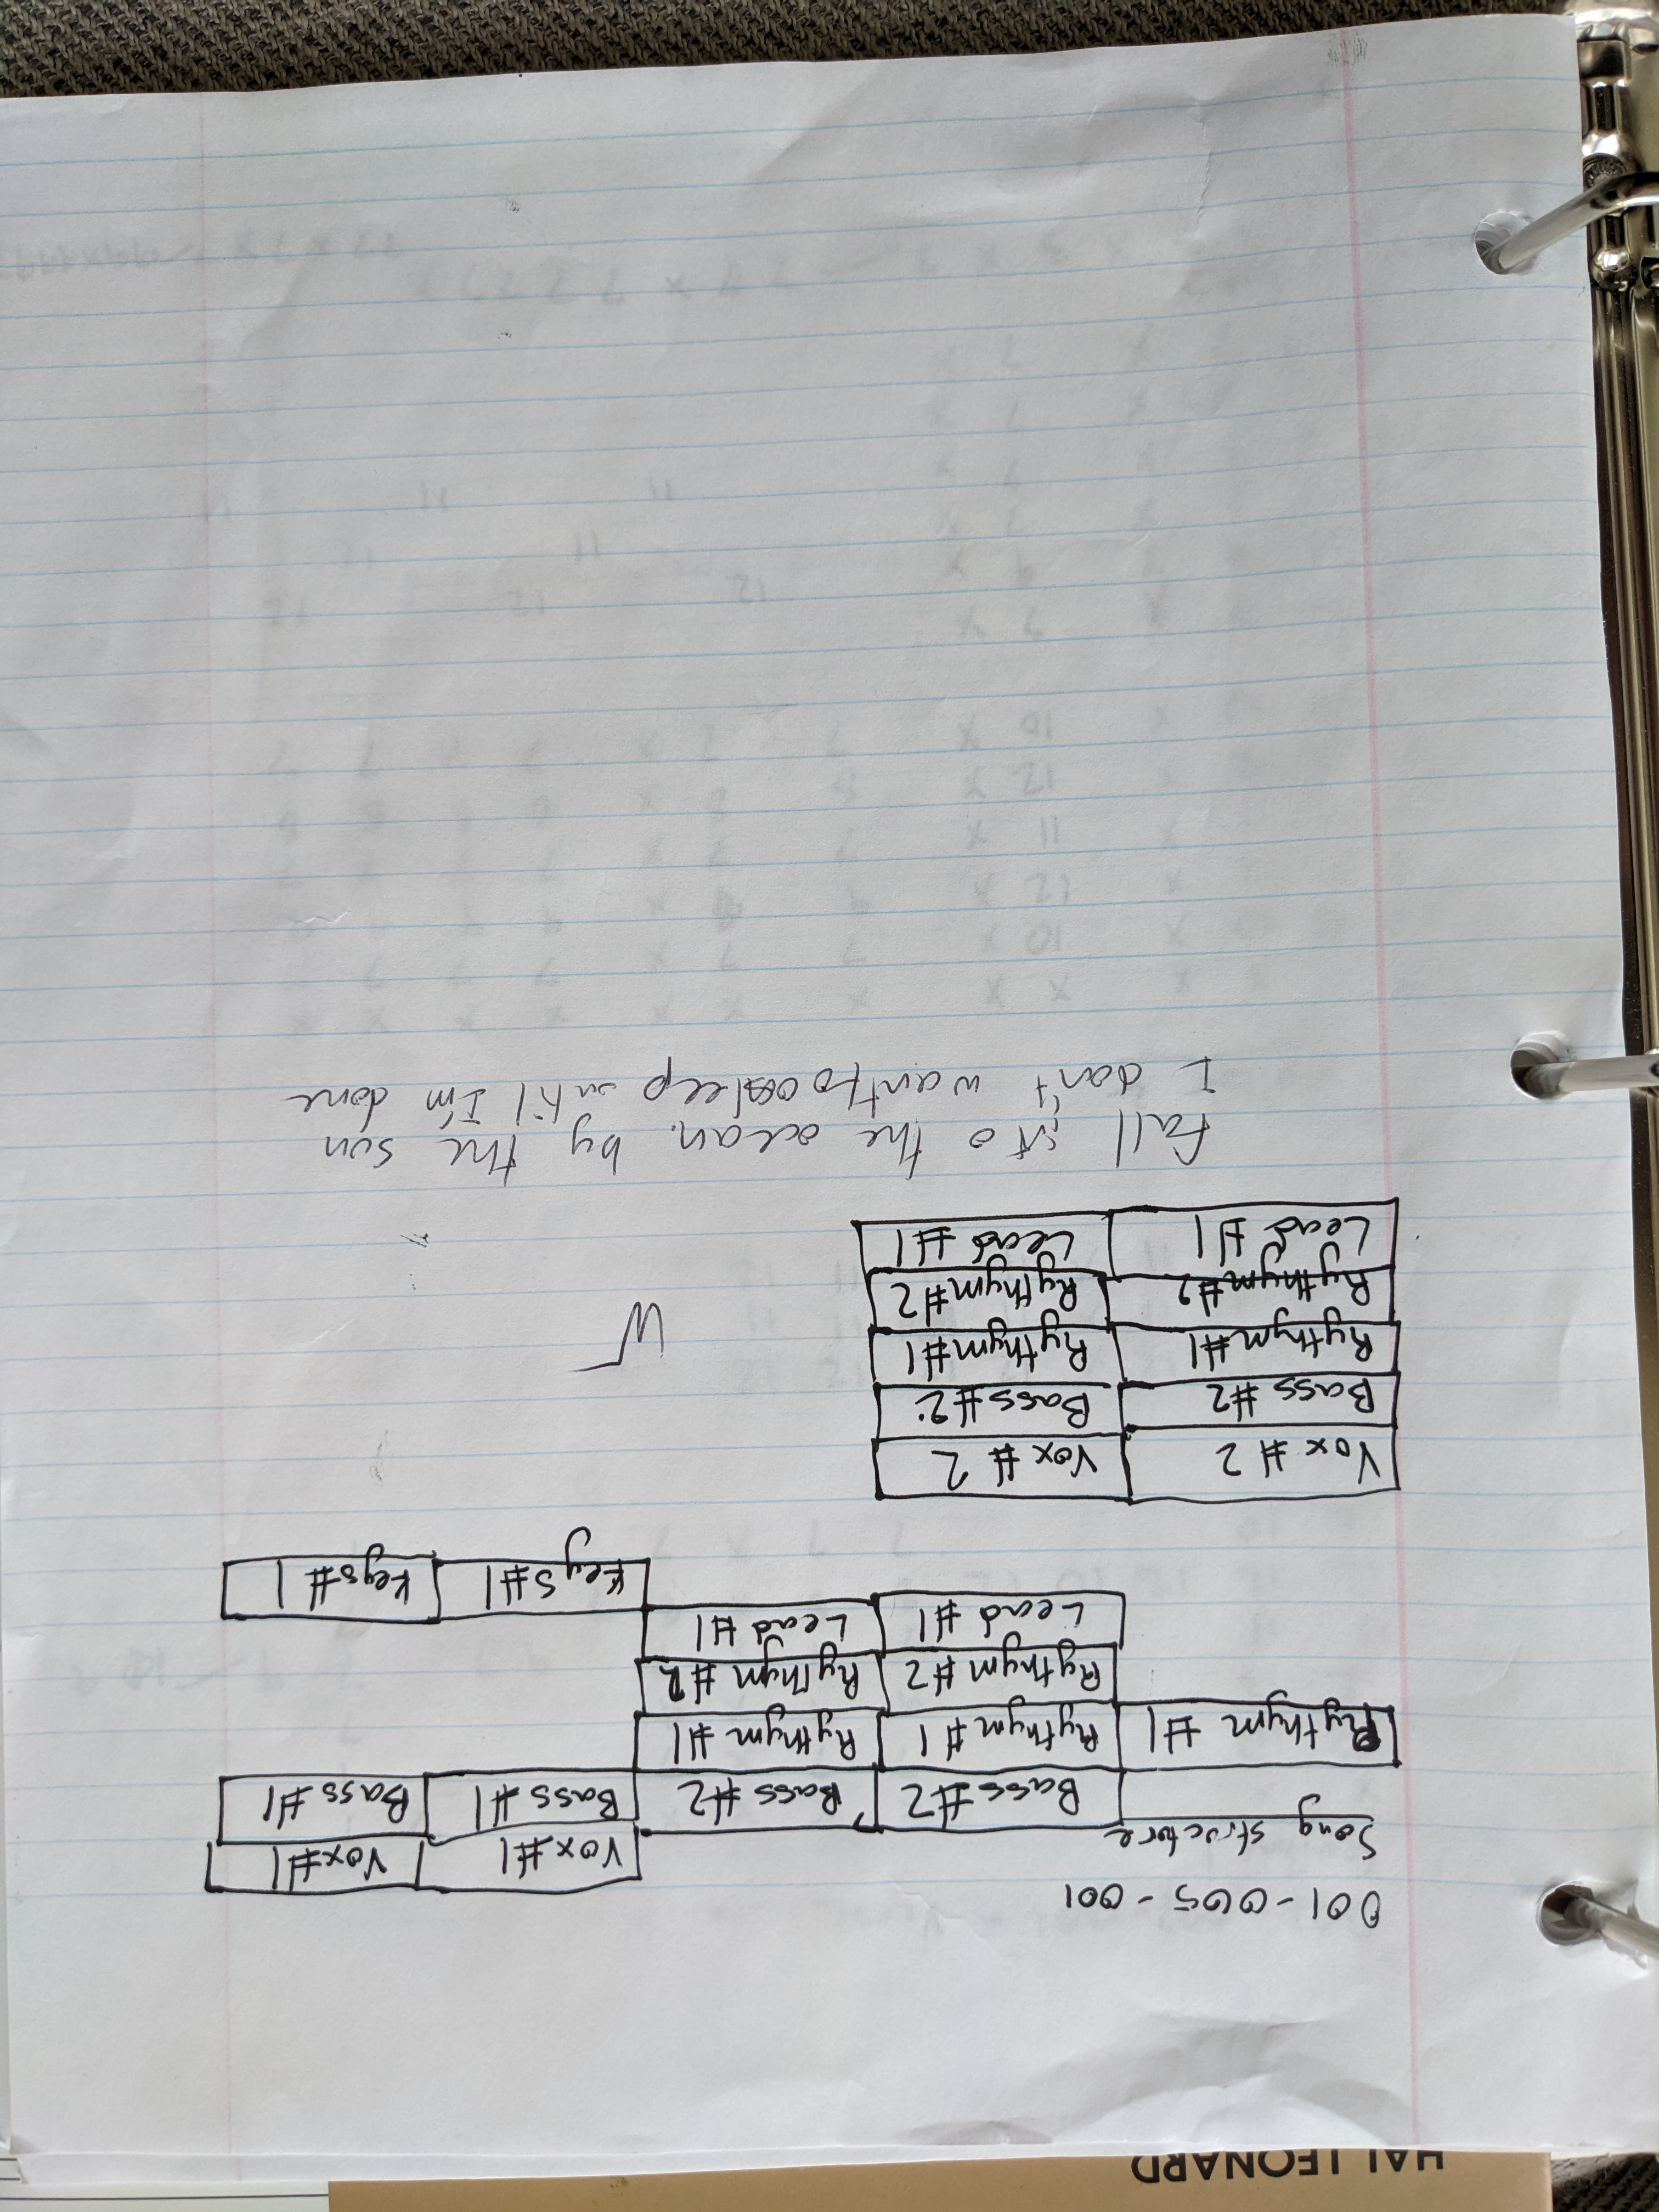 HAL LEONARD
001-005-001
Song structure
Vox #1 Vox #1
Bass #2 Bass #2 Bass #1 Bass #1
Rythym #1 Rythym #1 Rythym #1
Rythym #2 Rythym #2
Lead #1 Lead #1
Keys #1 Keys #1
Vox #2 Vox #2
Bass #2 Bass #2
Rythym #1 Rythym #1
Rythym #2 Rythym #2
Lead #1 Lead #1
Fall into the ocean. by the sun
I don't want to asleep until I'm done